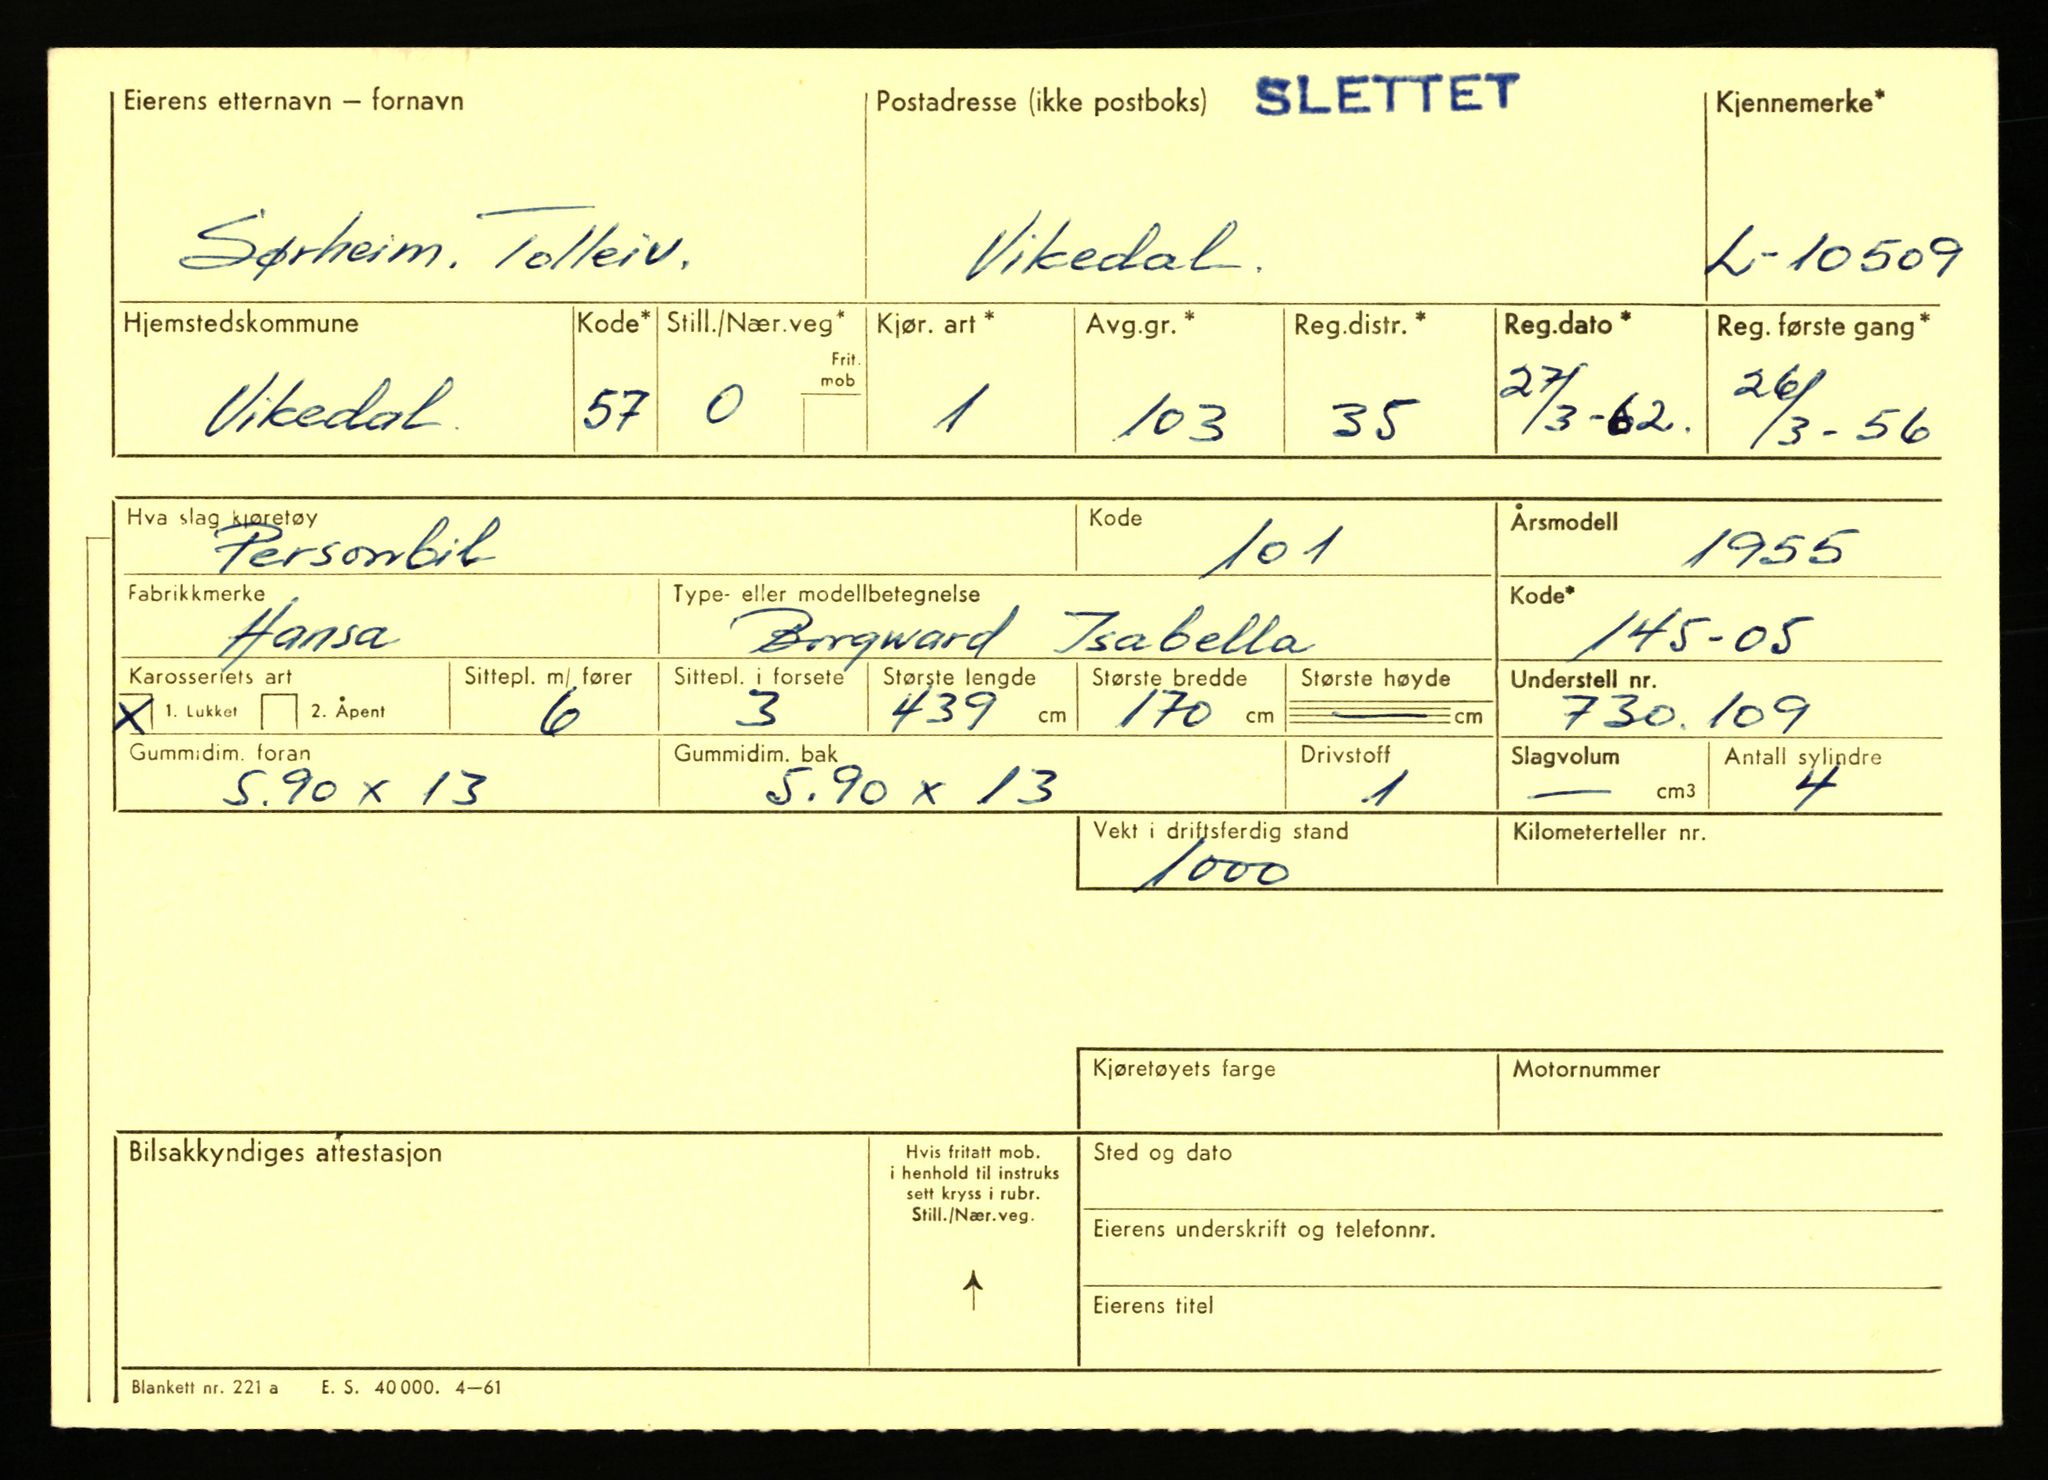 Eierens etternavn – fornavn Postadresse (ikke postboks) SLETTET Kjennemerke*
Sørheim. Tolleiv. Vikedal. L-10509
Hjemstedskommune Kode* Still./Nær.veg* Kjør. art * Avg.gr. * Reg.distr. * Reg.dato * Reg. første gang *
Frit. mob
Vikedal. 57 0 1 103 35 27/3-62. 26/3-56
Hva slag kjøretøy Kode Årsmodell
Personbil 101 1955
Fabrikkmerke Type- eller modellbetegnelse Kode*
Hansa Borgward Isabella 145-05
Karosseriets art Sittepl. m/ fører Sittepl. i forsete Største lengde Største bredde Største høyde Understell nr.
X 1. Lukket 2. Åpent 6 3 439 cm 170 cm — cm 730.109
Gummidim. foran Gummidim. bak Drivstoff Slagvolum Antall sylindre
5.90 x 13 5.90 x 13 1 — cm3 4
Vekt i driftsferdig stand Kilometerteller nr.
1000
Kjøretøyets farge Motornummer
Bilsakkyndiges attestasjon
Hvis fritatt mob.
i henhold til instruks
sett kryss i rubr.
Still./Nær.veg.
Sted og dato
Eierens underskrift og telefonnr.
Eierens titel
Blankett nr. 221 a E. S. 40 000. 4–61